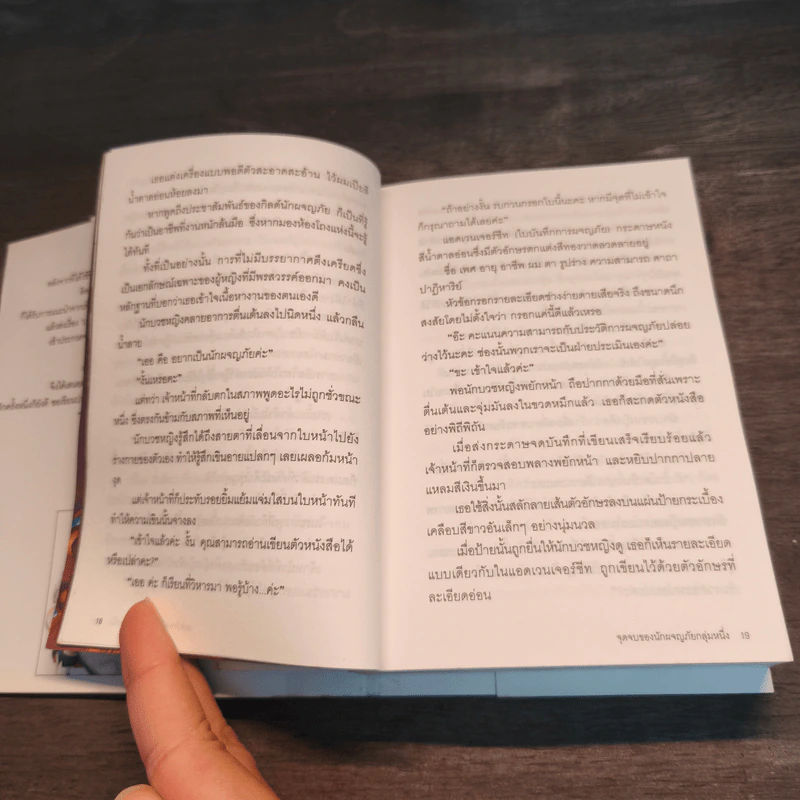 หลังจากที่ได้รั
ที่ได้รับการแนะนำจาก
เธอแต่งเครื่องแบบพอดีตัวสะอาดสะอ้าน ไว้ผมเปียสี
น้ำตาลอ่อนห้อยลงมา
หากพูดถึงประชาสัมพันธ์ของกิลด์นักผจญภัย ก็เป็นที่รู้
กันว่าเป็นอาชีพที่งานหนักล้นมือ ซึ่งหากมองห้องโถงแห่งนี้จะรู้
ได้ทันที
ทั้งที่เป็นอย่างนั้น การที่ไม่มีบรรยากาศตึงเครียดซึ่ง
เป็นเอกลักษณ์เฉพาะของผู้หญิงที่มีพรสวรรค์ออกมา คงเป็น
หลักฐานที่บอกว่าเธอเข้าใจเนื้อหางานของตนเองดี
นักบวชหญิงคลายอาการตื่นเต้นลงไปนิดหนึ่ง แล้วกลืน
น้ำลาย
"เออ คือ อยากเป็นนักผจญภัยค่ะ"
"งั้นเหรอคะ"
แต่ทว่า เจ้าหน้าที่กลับตกในสภาพพูดอะไรไม่ถูกชั่วขณะ
หนึ่ง ซึ่งตรงกันข้ามกับสภาพที่เห็นอยู่
นักบวชหญิงรู้สึกได้ถึงสายตาที่เลื่อนจากใบหน้าไปยัง
ร่างกายของตัวเอง ทำให้รู้สึกเขินอายแปลกๆ เลยเผลอก้มหน้า
งุด
แต่เจ้าหน้าที่ก็ประทับรอยยิ้มแย้มแจ่มใสบนใบหน้าทันที
ทำให้ความเขินนั้นจางลง
"เข้าใจแล้วค่ะ งั้น คุณสามารถอ่านเขียนตัวหนังสือได้
หรือเปล่าคะ?"
"เออ ค่ะ ก็เรียนที่วิหารมา พอรู้บ้าง...ค่ะ"
18
"ถ้าอย่างงั้น รบกวนกรอกใบนี้นะคะ หากมีจุดที่ไม่เข้าใจ
ก็กรุณาถามได้เลยค่ะ"
แอดเวนเจอร์ชีท (ใบบันทึกการผจญภัย) กระดาษหนัง
สีน้ำตาลอ่อนซึ่งมีตัวอักษรตกแต่งสีทองวาดลวดลายอยู่
ชื่อ เพศ อายุ อาชีพ ผม ตา รูปร่าง ความสามารถ คาถา
ปาฏิหาริย์
หัวข้อกรอกรายละเอียดช่างง่ายดายเสียจริง ถึงขนาดนึก
สงสัยโดยไม่ตั้งใจว่า กรอกแค่นี้ดีแล้วเหรอ
"อ๊ะ คะแนนความสามารถกับประวัติการผจญภัยปล่อย
ว่างไว้นะคะ ช่องนั้นพวกเราจะเป็นฝ่ายประเมินเองค่ะ"
"ขะ เข้าใจแล้วค่ะ"
พอนักบวชหญิงพยักหน้า ถือปากกาด้วยมือที่สั่นเพราะ
ตื่นเต้นและจุ่มมันลงในขวดหมึกแล้ว เธอก็สะกดตัวหนังสือ
อย่างพิถีพิถัน
เมื่อส่งกระดาษจดบันทึกที่เขียนเสร็จเรียบร้อยแล้ว
เจ้าหน้าที่ก็ตรวจสอบพลางพยักหน้า และหยิบปากกาปลาย
แหลมสีเงินขึ้นมา
เธอใช้สิ่งนั้นสลักลายเส้นตัวอักษรลงบนแผ่นป้ายกระเบื้อง
เคลือบสีขาวอันเล็กๆ อย่างนุ่มนวล
เมื่อป้ายนั้นถูกยื่นให้นักบวชหญิงดู เธอก็เห็นรายละเอียด
แบบเดียวกับในแอดเวนเจอร์ชีท ถูกเขียนไว้ด้วยตัวอักษรที่
ละเอียดอ่อน
จุดจบของนักผจญภัยกลุ่มหนึ่ง 19